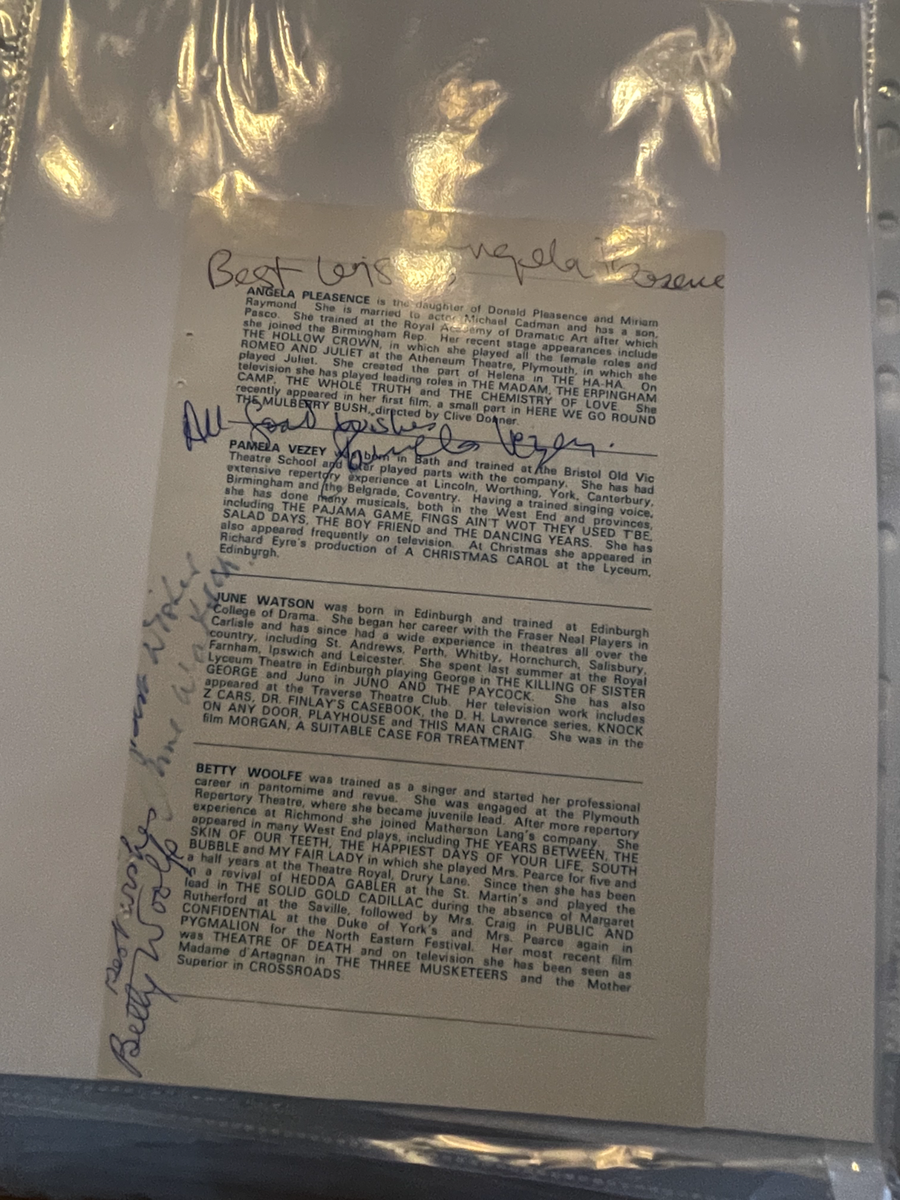 Best Wishes, Angela Pleasence
ANGELA PLEASENCE is the daughter of Donald Pleasence and Miriam
Raymond. She is married to actor Michael Cadman and has a son,
Pasco. She trained at the Royal Academy of Dramatic Art after which
she joined the Birmingham Rep. Her recent stage appearances include
THE HOLLOW CROWN, in which she played all the female roles and
ROMEO AND JULIET at the Atheneum Theatre, Plymouth, in which she
played Juliet. She created the part of Helena in THE HA-HA. On
television she has played leading roles in THE MADAM, THE ERPINGHAM
CAMP, THE WHOLE TRUTH and THE CHEMISTRY OF LOVE. She
recently appeared in her first film, a small part in HERE WE GO ROUND
THE MULBERRY BUSH, directed by Clive Donner.
All Good Wishes
Pamela Vezey.
PAMELA VEZEY was born in Bath and trained at the Bristol Old Vic
Theatre School and later played parts with the company. She has had
extensive repertory experience at Lincoln, Worthing, York, Canterbury,
Birmingham and the Belgrade, Coventry. Having a trained singing voice,
she has done many musicals, both in the West End and provinces,
including THE PAJAMA GAME, FINGS AIN'T WOT THEY USED T'BE,
SALAD DAYS, THE BOY FRIEND and THE DANCING YEARS. She has
also appeared frequently on television. At Christmas she appeared in
Richard Eyre's production of A CHRISTMAS CAROL at the Lyceum,
Edinburgh.
JUNE WATSON was born in Edinburgh and trained at Edinburgh
College of Drama. She began her career with the Fraser Neal Players in
Carlisle and has since had a wide experience in theatres all over the
country, including St. Andrews, Perth, Whitby, Hornchurch, Salisbury,
Farnham, Ipswich and Leicester. She spent last summer at the Royal
Lyceum Theatre in Edinburgh playing George in THE KILLING OF SISTER
GEORGE and Juno in JUNO AND THE PAYCOCK. She has also
appeared at the Traverse Theatre Club. Her television work includes
Z CARS, DR. FINLAY'S CASEBOOK, the D. H. Lawrence series, KNOCK
ON ANY DOOR, PLAYHOUSE and THIS MAN CRAIG. She was in the
film MORGAN, A SUITABLE CASE FOR TREATMENT
wishes
June Watson
BETTY WOOLFE was trained as a singer and started her professional
career in pantomime and revue. She was engaged at the Plymouth
Repertory Theatre, where she became juvenile lead. After more repertory
experience at Richmond she joined Matherson Lang's company. She
appeared in many West End plays, including THE YEARS BETWEEN, THE
SKIN OF OUR TEETH, THE HAPPIEST DAYS OF YOUR LIFE, SOUTH
BUBBLE and MY FAIR LADY in which she played Mrs. Pearce for five and
a half years at the Theatre Royal, Drury Lane. Since then she has been
a revival of HEDDA GABLER at the St. Martin's and played the
lead in THE SOLID GOLD CADILLAC during the absence of Margaret
Rutherford at the Saville, followed by Mrs. Craig in PUBLIC AND
CONFIDENTIAL at the Duke of York's and Mrs. Pearce again in
PYGMALION for the North Eastern Festival. Her most recent film
was THEATRE OF DEATH and on television she has been seen as
Madame d'Artagnan in THE THREE MUSKETEERS and the Mother
Superior in CROSSROADS
Best wishes
Betty Woolfe